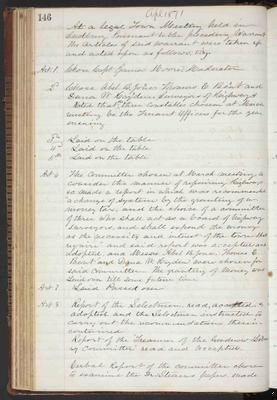 146
Apl 1871
At a legal Town Meeting held in
Sudbury Pursuant to the preceding Warrant
the articles of said warrant were taken up
and acted upon as follows, viz.
Art 1. Chose Capt James Moore Moderator
2d Chose Abel B Jones Thomas E. Bent and
Dana W. Hayden Surveyors of Highways
Voted that three constables chosen at March
meeting be the Truant Officers for the year
ensuing
3rd Laid on the table
4th Laid on the table
5th Laid on the table
Art 6 The Committee chosen at March meeting to
consider the manner of repairing Highways
made a report in which was recommended
a change of system by the granting of a
money tax, and the choice of a committee
of three who shall act as a board of highway
Surveyors, and shall expend the money
as the necessity and interest of the town shall
require and said report was accepted and
adopted, and Messrs Abel B Jones, Thomas E.
Bent and Dana W. Hayden were chosen for
said Committee. The granting of Money was
laid over till some future time
Art 7 Laid Passed over
Art 8 Report of the Selectmen read, accepted &
adopted and the Selectmen instructed to
carry out the recommendations therein
contained
Report of the Treasurer of the Goodnow Library
Committee read and accepted
Verbal Report of the committee chosen
to examine the papers made